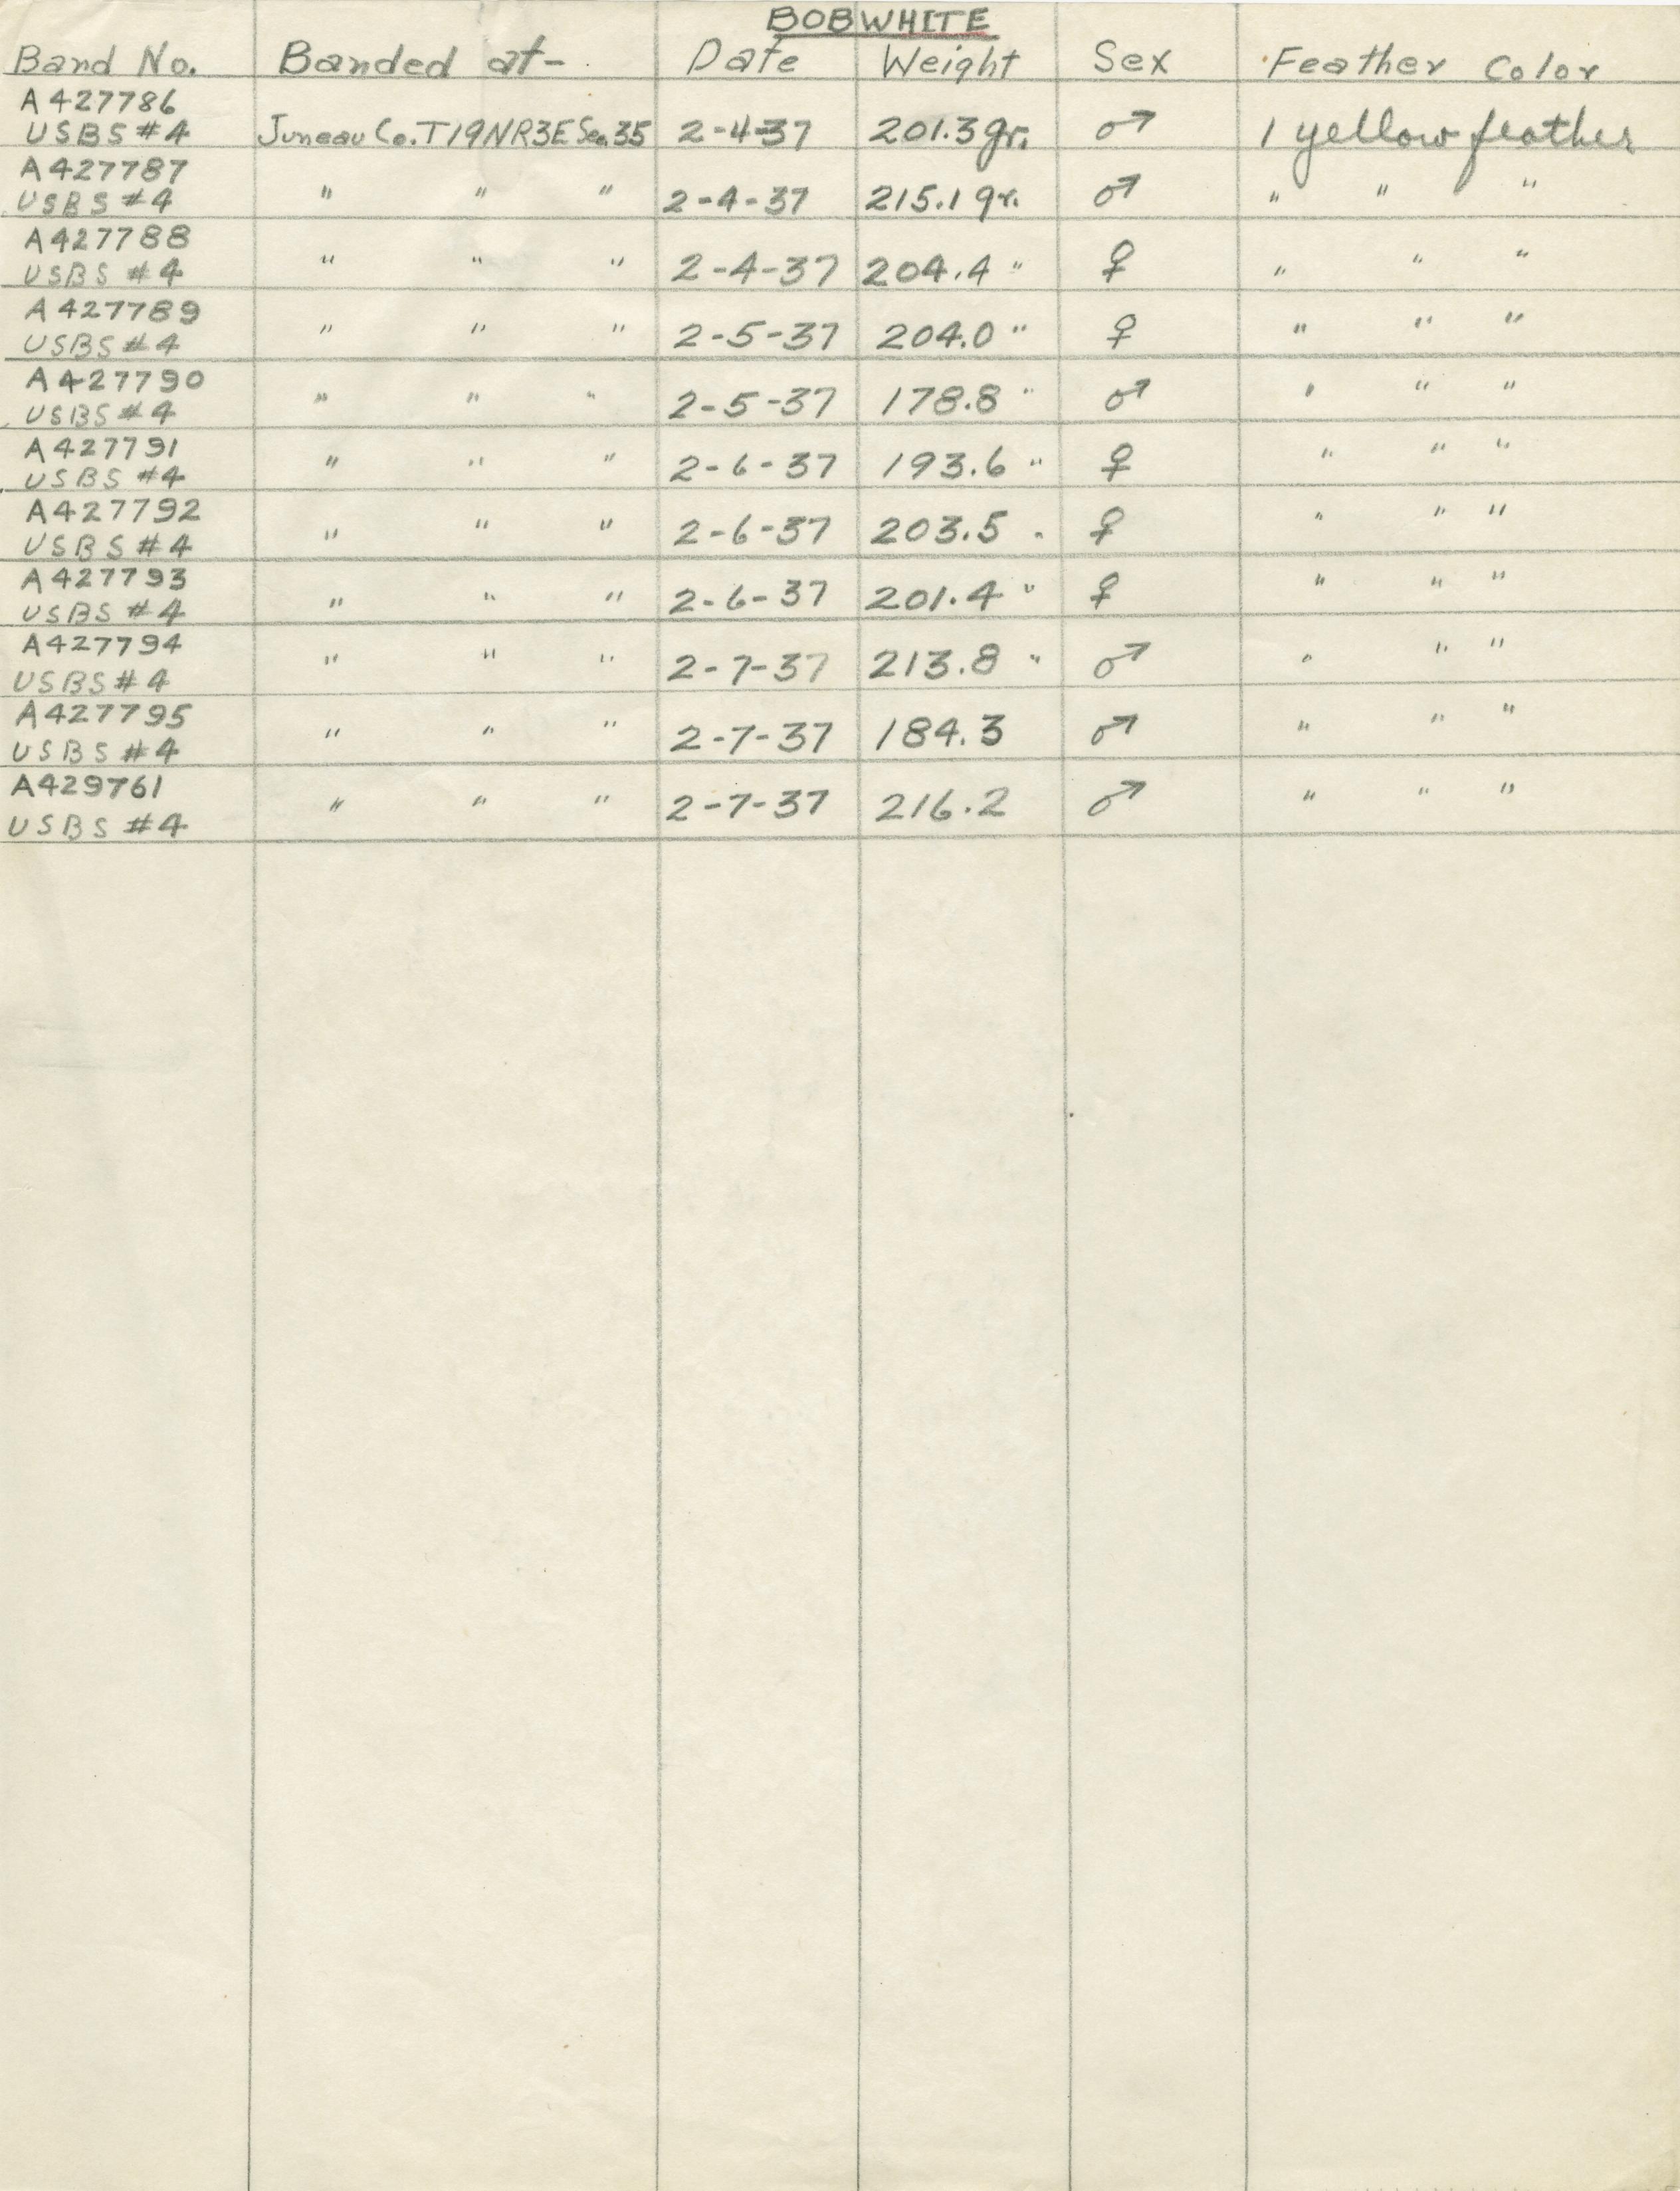 BOBWHITE
Band No. Banded at- Date Weight Sex Feather Color
A427786
USBS #4 Juneau Co. T19NR3E Sec. 35 2-4-37 201.3 gr. ♂ 1 yellow feather
A427787
USBS #4 " " " 2-4-37 215.1 gr. ♂ " " "
A427788
USBS #4 " " " 2-4-37 204.4 " ♀ " " "
A427789
USBS #4 " " " 2-5-37 204.0 " ♀ " " "
A427790
USBS #4 " " " 2-5-37 178.8 " ♂ " " "
A427791
USBS #4 " " " 2-6-37 193.6 " ♀ " " "
A427792
USBS #4 " " " 2-6-37 203.5 " ♀ " " "
A427793
USBS #4 " " " 2-6-37 201.4 " ♀ " " "
A427794
USBS #4 " " " 2-7-37 213.8 " ♂ " " "
A427795
USBS #4 " " " 2-7-37 184.3 ♂ " " "
A429761
USBS #4 " " " 2-7-37 216.2 ♂ " " "